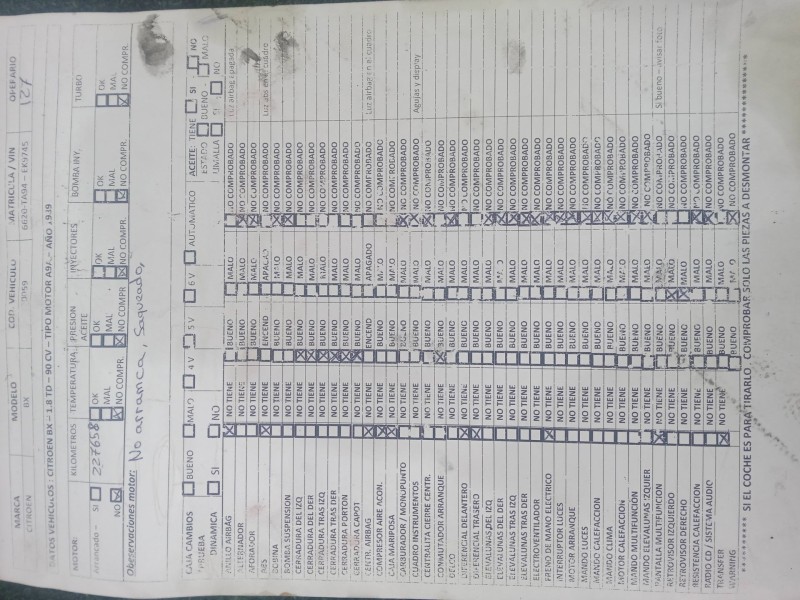 MARCA MODELO COD. VEHICULO MATRICULA / VIN OPERARIO
CITROEN BX 6620-TA04 - EK9745 127
DATOS VEHICULOS : CITROEN BX - 1.8 TD - 90 CV - TIPO MOTOR A9A - AÑO 1989
MOTOR: KILOMETROS TEMPERATURA PRESION ACEITE INYECTORES BOMBA INY. TURBO
Arrancado - SI 227658 OK OK OK OK OK
MAL MAL MAL MAL MAL
NO NO COMPR. NO COMPR. NO COMPR. NO COMPR. NO COMPR.
Observaciones motor: No arranca, Saqueado,
CAJA CAMBIOS BUENO MALO 4 V 5 V 6 V AUTOMATICO ACEITE TIENE SI NO
PRUEBA ESTADO BUENO MALO
DINAMICA SI NO VIRALLA SI NO
ANILLO AIRBAG NO TIENE BUENO MALO NO COMPROBADO Luz airbag apagada
ALTERNADOR NO TIENE BUENO MALO NO COMPROBADO
APOYADOR NO TIENE BUENO MALO NO COMPROBADO
ABS NO TIENE ENCEND APAGADO NO COMPROBADO Luz abs en el cuadro
BOBINA NO TIENE BUENO MALO NO COMPROBADO
BOMBA SUSPENSION NO TIENE BUENO MALO NO COMPROBADO
CERRADURA DEL IZQ NO TIENE BUENO MALO NO COMPROBADO
CERRADURA DEL DER NO TIENE BUENO MALO NO COMPROBADO
CERRADURA TRAS IZQ NO TIENE BUENO MALO NO COMPROBADO
CERRADURA TRAS DER NO TIENE BUENO MALO NO COMPROBADO
CERRADURA PORTON NO TIENE BUENO MALO NO COMPROBADO
CERRADURA CAPOT NO TIENE BUENO MALO NO COMPROBADO
CENTR. AIRBAG NO TIENE ENCEND APAGADO NO COMPROBADO Luz airbag en el cuadro
COMPRESOR AIRE ACON. NO TIENE BUENO MALO NO COMPROBADO
CAJA MARIPOSA NO TIENE BUENO MALO NO COMPROBADO
CARBURADOR / MONOPUNTO NO TIENE BUENO MALO NO COMPROBADO
CUADRO INSTRUMENTOS NO TIENE BUENO MALO NO COMPROBADO Agujas y display
CENTRALITA CIERRE CENTR. NO TIENE BUENO MALO NO COMPROBADO
CONMUTADOR ARRANQUE NO TIENE BUENO MALO NO COMPROBADO
DELCO NO TIENE BUENO MALO NO COMPROBADO
DIFERENCIAL DELANTERO NO TIENE BUENO MALO NO COMPROBADO
DIFERENCIAL TRASERO NO TIENE BUENO MALO NO COMPROBADO
ELEVALUNAS DEL IZQ NO TIENE BUENO MALO NO COMPROBADO
ELEVALUNAS DEL DER NO TIENE BUENO MALO NO COMPROBADO
ELEVALUNAS TRAS IZQ NO TIENE BUENO MALO NO COMPROBADO
ELEVALUNAS TRAS DER NO TIENE BUENO MALO NO COMPROBADO
ELECTROVENTILADOR NO TIENE BUENO MALO NO COMPROBADO
FRENO DE MANO ELECTRICO NO TIENE BUENO MALO NO COMPROBADO
INTERRUPTOR LUCES NO TIENE BUENO MALO NO COMPROBADO
MOTOR ARRANQUE NO TIENE BUENO MALO NO COMPROBADO
MANDO LUCES NO TIENE BUENO MALO NO COMPROBADO
MANDO CALEFACCION NO TIENE BUENO MALO NO COMPROBADO
MANDO CLIMA NO TIENE BUENO MALO NO COMPROBADO
MOTOR CALEFACCION NO TIENE BUENO MALO NO COMPROBADO
MANDO MULTIFUNCIÓN NO TIENE BUENO MALO NO COMPROBADO
MANDO ELEVALUNAS IZQUIER NO TIENE BUENO MALO NO COMPROBADO
PANTALLA MULTIFUNCION NO TIENE BUENO MALO NO COMPROBADO Si bueno - avisar foto
RETROVISOR IZQUIERDO NO TIENE BUENO MALO NO COMPROBADO
RETROVISOR DERECHO NO TIENE BUENO MALO NO COMPROBADO
RESISTENCIA CALEFACCION NO TIENE BUENO MALO NO COMPROBADO
RADIO CD / SISTEMA AUDIO NO TIENE BUENO MALO NO COMPROBADO
TRANSFER NO TIENE BUENO MALO NO COMPROBADO
WARNING NO TIENE BUENO MALO NO COMPROBADO
********** SI EL COCHE ES PARA TIRARLO - COMPROBAR SOLO LAS PIEZAS A DESMONTAR **********